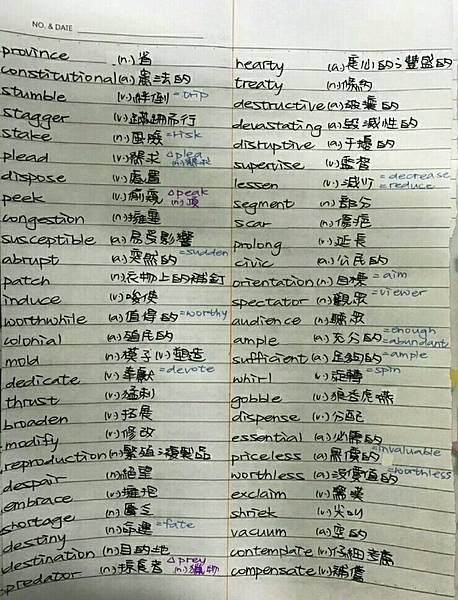 NO. & DATE
province (n.) 省
constitutional (a.) 憲法的
stumble (v.) 絆倒 =trip
stagger (v.) 蹣跚而行
stake (n.) 風險 =risk
plead (v.) 懇求 △plea (n.) 懇求
dispose (v.) 處置
peek (v.) 偷窺 △peak (n.) 頂
congestion (n.) 擁塞
susceptible (a.) 易受影響
abrupt (a.) 突然的 =sudden
patch (n.) 衣物上的補釘
induce (v.) 唆使
worthwhile (a.) 值得的 =worthy
colonial (a.) 殖民的
mold (n.) 模子 (v.) 塑造
dedicate (v.) 奉獻 =devote
thrust (v.) 猛刺
broaden (v.) 拓展
modify (v.) 修改
reproduction (n.) 繁殖;複製品
despair (n.) 絕望
embrace (v.) 擁抱
shortage (n.) 匱乏
destiny (n.) 命運 =fate
destination (n.) 目的地
predator (n.) 掠食者 △prey (n.) 獵物
hearty (a.) 衷心的;豐盛的
treaty (n.) 條約
destructive (a.) 破壞的
devastating (a.) 毀滅性的
disruptive (a.) 干擾的
supervise (v.) 監督
lessen (v.) 減少 =decrease =reduce
segment (n.) 部分
scar (n.) 傷疤
prolong (v.) 延長
civic (a.) 公民的
orientation (n.) 目標 =aim
spectator (n.) 觀眾 =viewer
audience (n.) 聽眾
ample (a.) 充分的 =enough =abundant
sufficient (a.) 足夠的 =ample
whirl (v.) 旋轉 =spin
gobble (v.) 狼吞虎嚥
dispense (v.) 分配
essential (a.) 必需的
priceless (a.) 無價的 =invaluable
worthless (a.) 沒價值的 =worthless
exclaim (v.) 驚嘆
shriek (v.) 尖叫
vacuum (a.) 空的
contemplate (v.) 仔細考慮
compensate (v.) 補償